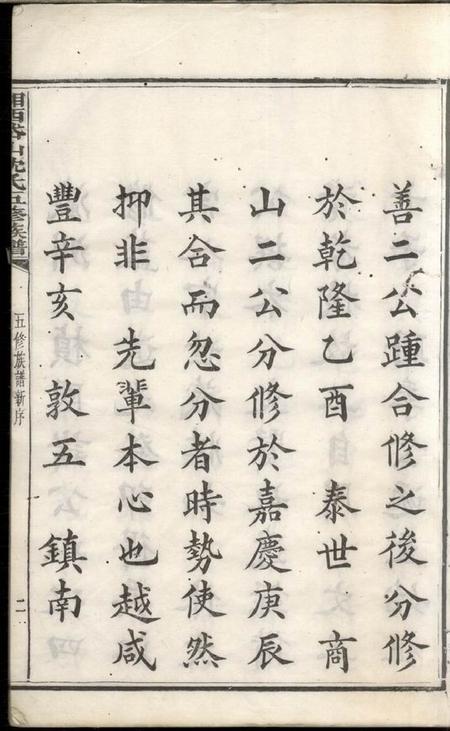 善二公踵合修之後分修
於乾隆乙酉 泰世 商
山二公分修於嘉慶庚辰
其合而忽分者時勢使然
抑非 先輩本心也越咸
豐辛亥 敦五 鎮南
湘西峉山沈氏五修族譜
五修族譜新序
二